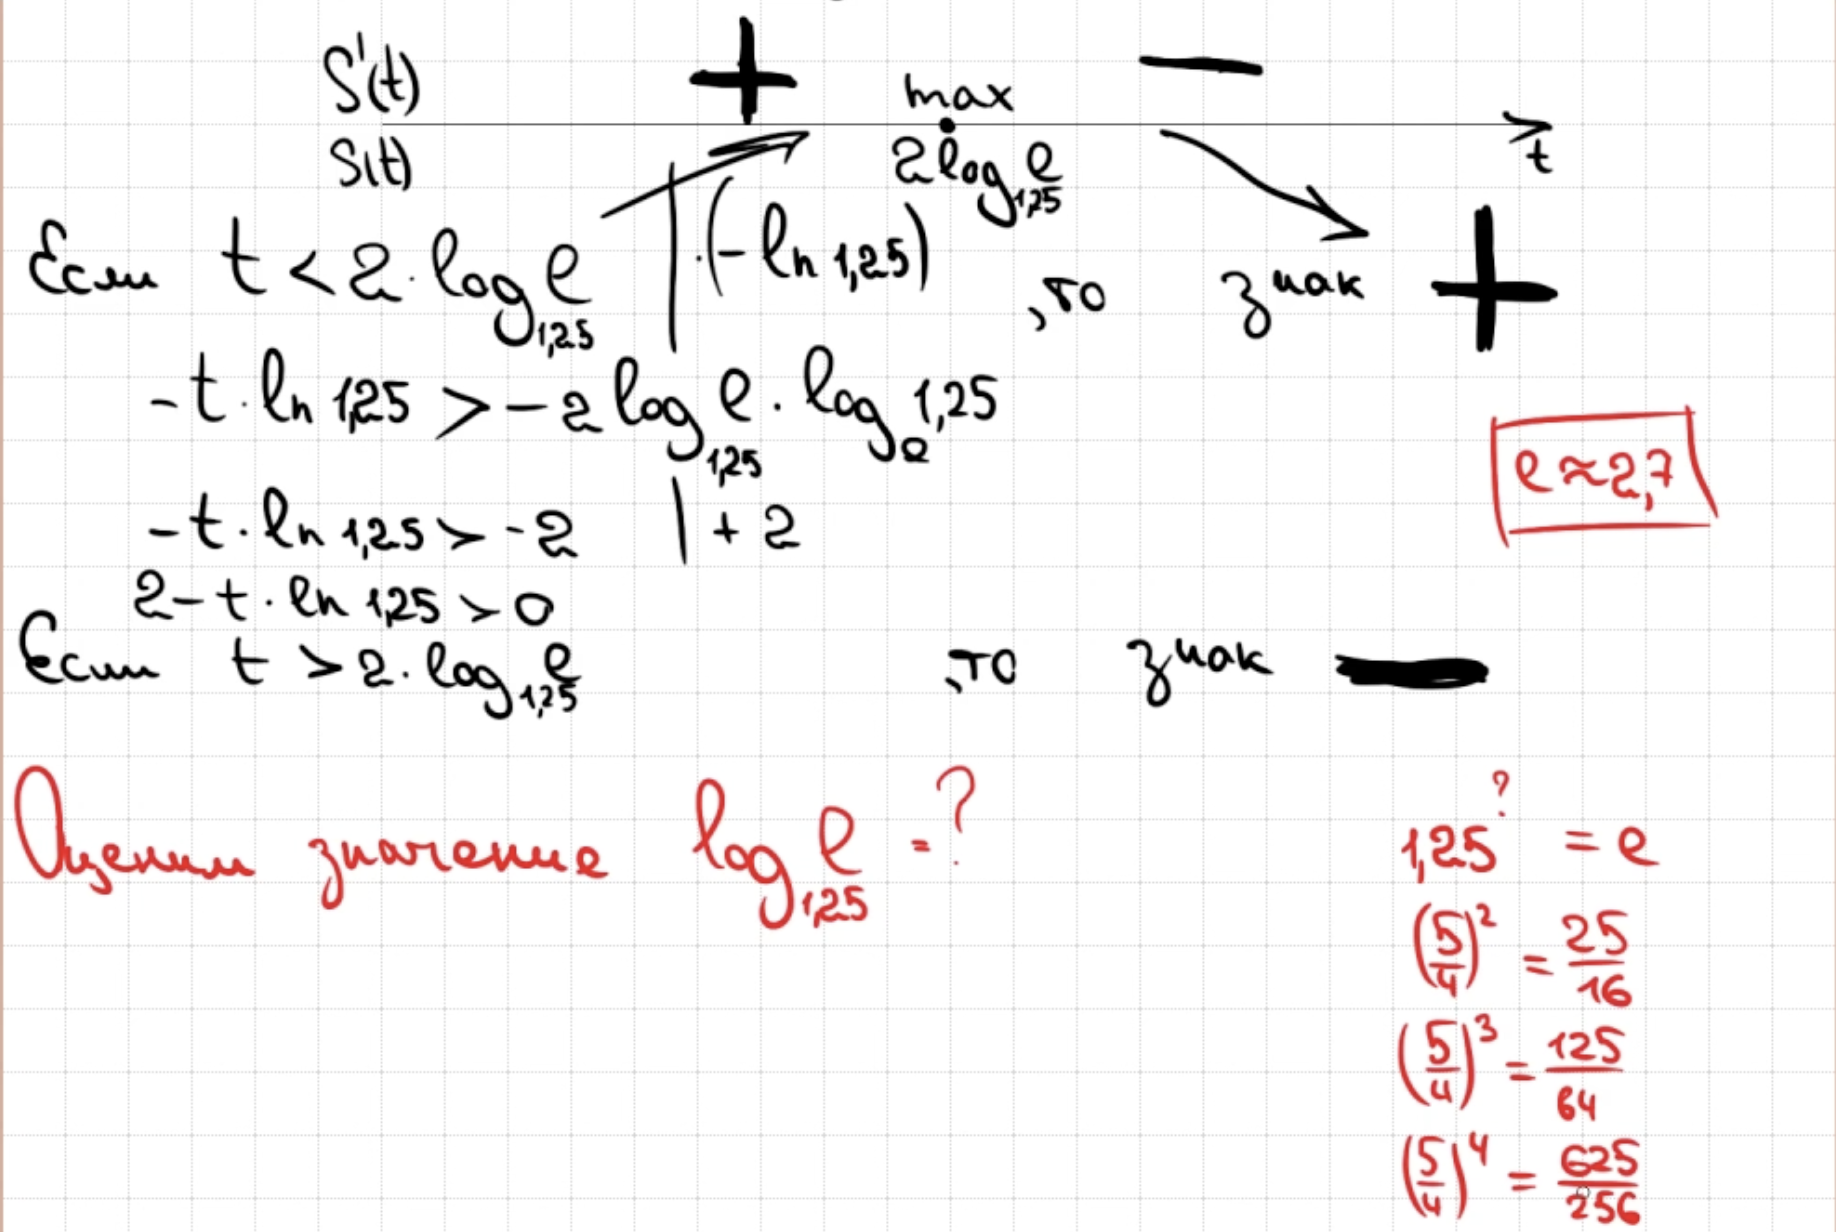 S'(t) + max −
S(t) 2log₁,₂₅e t
Если t < 2·log₁,₂₅e | ·(−ln 1,25) , то знак +
−t·ln 1,25 > −2log₁,₂₅e·logₑ1,25
e ≈ 2,7
−t·ln 1,25 > −2 | + 2
2−t·ln 1,25 > 0
Если t > 2·log₁,₂₅e , то знак −
Оценим значение log₁,₂₅e = ?
1,25^? = e
(5/4)² = 25/16
(5/4)³ = 125/64
(5/4)⁴ = 625/256